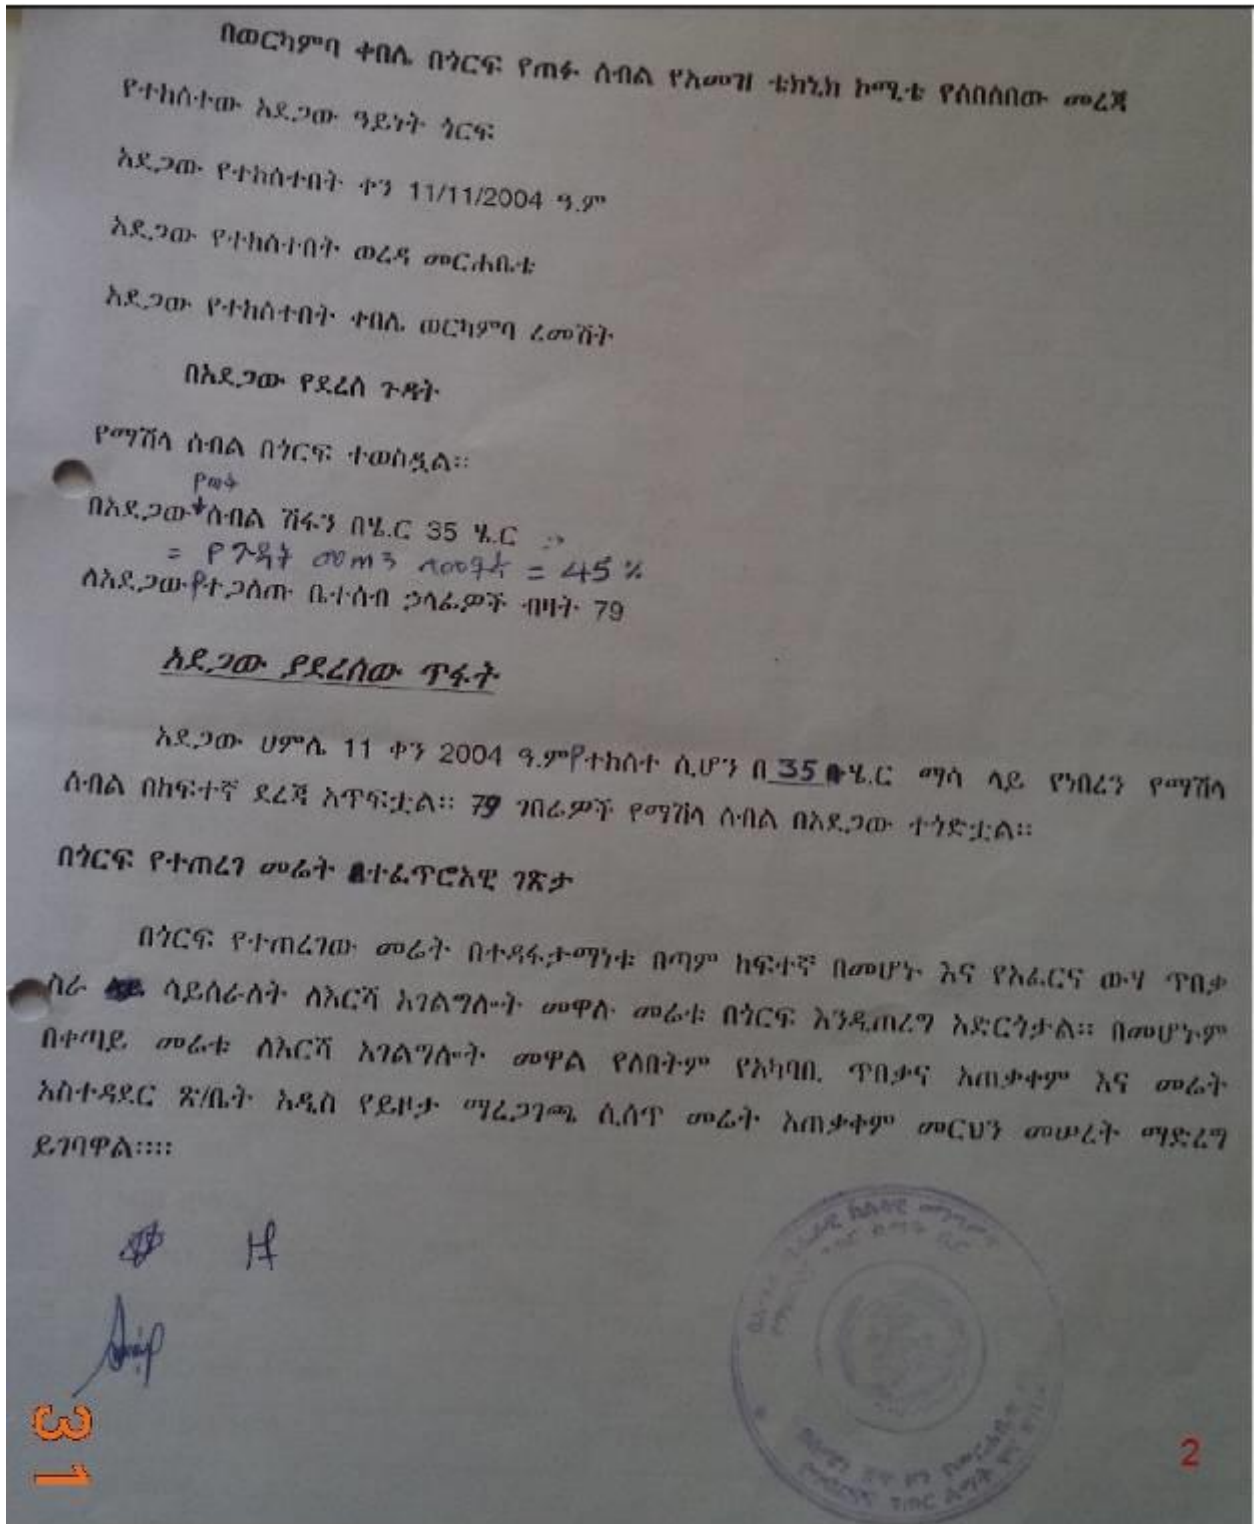 በወርካምባ ቀበሌ በጎርፍ የጠፉ ሰብል የአመዝ ቴክኒክ ኮሚቴ የሰበሰበው መረጃ
የተከሰተው አደጋው ዓይነት ጎርፍ
አደጋው የተከሰተበት ቀን 11/11/2004 ዓ.ም
አደጋው የተከሰተበት ወረዳ መርሐቤቴ
አደጋው የተከሰተበት ቀበሌ ወርካምባ ረመሸት
በአደጋው የደረሰ ጉዳት
የማሽላ ሰብል በጎርፍ ተወስዷል።
የጠፋ
በአደጋው ሰብል ሽፋን በሄ.ር 35 ሄ.ር
= የጉዳት መጠን በመቶኛ = 45 %
ለአደጋው የተጋለጡ ቤተሰብ ኃላፊዎች ብዛት 79
አደጋው ያደረሰው ጥፋት
አደጋው ሀምሌ 11 ቀን 2004 ዓ.ም የተከሰተ ሲሆን በ 35 ሄ.ር ማሳ ላይ የነበረን የማሽላ
ሰብል በከፍተኛ ደረጃ አጥፍቷል። 79 ገበሬዎች የማሽላ ሰብል በአደጋው ተጎድቷል።
በጎርፍ የተጠረገ መሬት በተፈጥሮአዊ ገጽታ
በጎርፍ የተጠረገው መሬት በተዳፋታማነቱ በጣም ከፍተኛ በመሆኑ እና የአፈርና ውሃ ጥበቃ
ስራ ሳይሰራለት ለእርሻ አገልግሎት መዋሉ መሬቱ በጎርፍ እንዲጠረግ አድርጎታል። በመሆኑም
በቀጣይ መሬቱ ለእርሻ አገልግሎት መዋል የለበትም የአካባቢ ጥበቃና አጠቃቀም እና መሬት
አስተዳደር ጽ/ቤት አዲስ የይዞታ ማረጋገጫ ሲሰጥ መሬት አጠቃቀም መርህን መሠረት ማድረግ
ይገባዋል።።
31
2